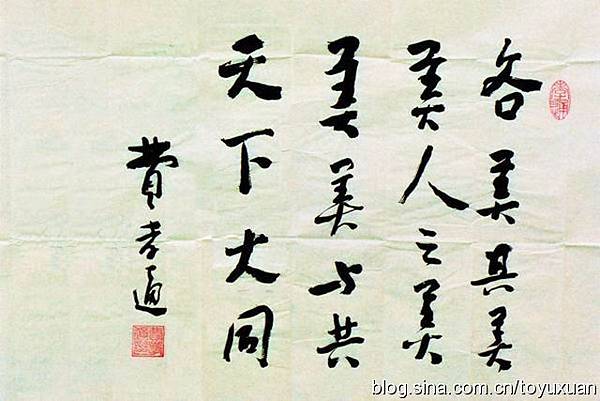 各美其美
美人之美
美美与共
天下大同
费孝通
blog.sina.com.cn/toyuxuan